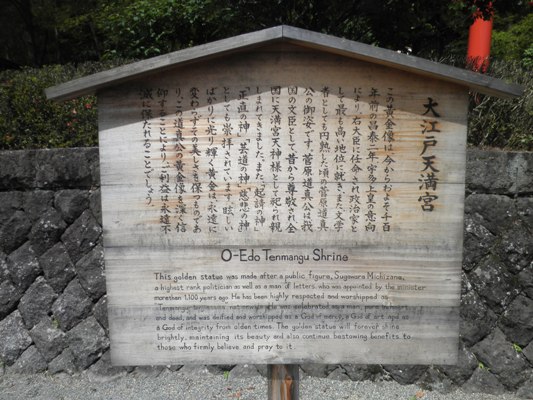 大江戸天満宮
この黄金像は今からおよそ千百
年前の昌泰二年宇多上皇の意向
により、右大臣に任命され政治家と
して最も高い地位に就き、また文学
者としても円熟した頃の菅原道真
公の御姿です。菅原道真公は我
国の文臣として昔から尊敬され全
国に天満宮天神様として祀られ親
しまれてきました。また「起請の神」
「正直の神」「芸道の神」「慈悲の神」
としても崇拝されています。眩い
ばかりに光り輝く黄金像は永遠に
変わらずその美しさを保つものであ
り、この道真公の黄金像を深く信
仰することによりご利益は永遠不
滅に保たれることでしょう。
O-Edo Tenmangu Shrine
This golden statue was made after a public figure, Sugawara Michizane,
a highest rank politician as well as a man of letters who was appointed by the minister
more than 1,100 years ago. He has been highly respected and worshipped as
"Tenmangu Tenjin-sama"
and dead, and was deified and worshipped as a God of mercy, a God of art, and as
a God of integrity from olden times. The golden statue will forever shine
brightly, maintaining its beauty and also continue bestowing benefits to
those who firmly believe and pray to it.